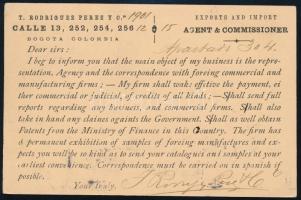 T. RODRIGUEZ PEREZ Y Co. 1901 EXPORTS AND IMPORT
CALLE 13, 252, 254, 256 12 15 AGENT & COMMISSIONER
BOGOTA COLOMBIA
Apartado 304.
Dear sirs:
I beg to inform you that the main object of my business is the representation, Agency and the correspondence with foreing commercial and
manufacturing firms; — My firm shall wok: effetive the payment, either
commercial or judicial, of credits of all kinds; — Shall send full
reports regarding any business, and commercial firms. Shall also
take in hand any claims against the Government. Shall as well obtain
Patents from the Ministry of Finance in this Country. The firm has
a permanent exhibition of samples of foreing manufactures and expects
you will be so kind as to send your catalogues and samples at your
earliest convenience. Correspondence must be carried on in spanish if
possible.
Your truly,